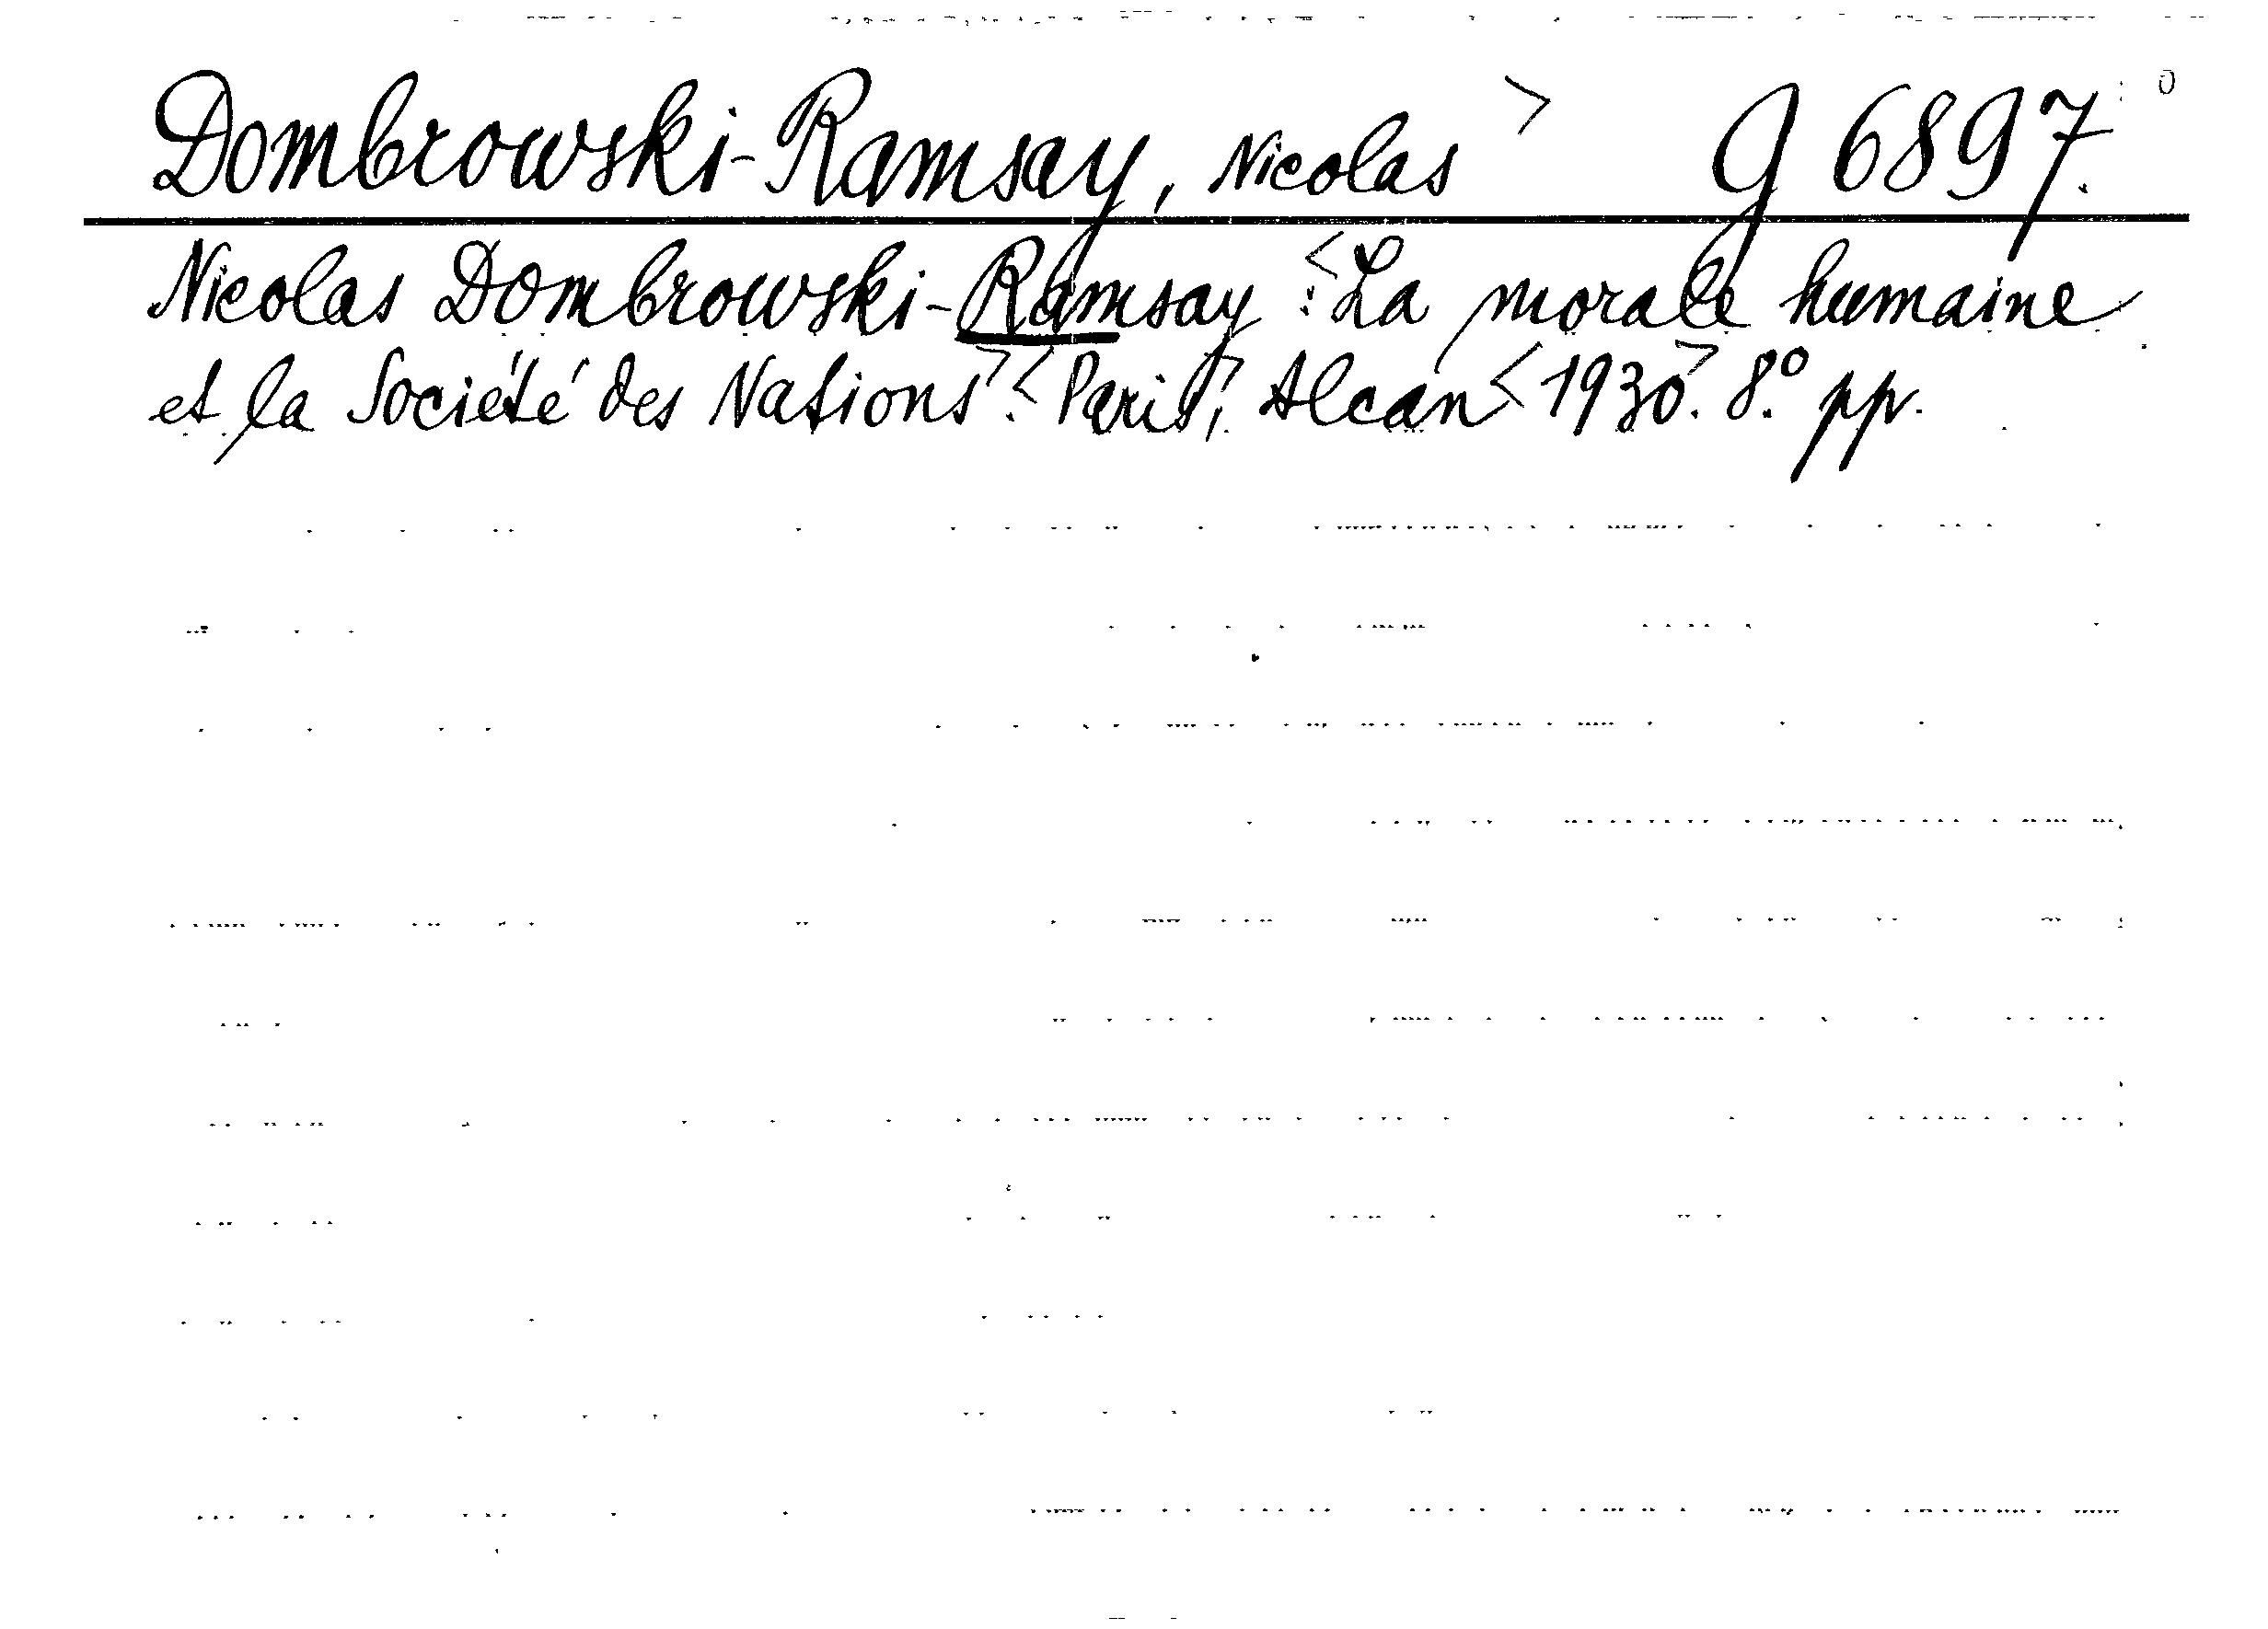 Dombrowski-Ramsay, Nicolas > g 6897.
Nicolas Dombrowski-Ramsay :<La morale humaine
et la Société des Nations>.<Paris>, Alcan<1930>. 8.° pp.